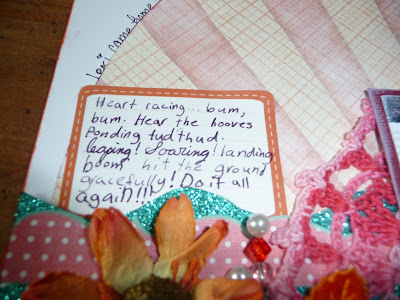 lexi come home
Heart racing... bum,
bum. Hear the hooves
Ponding tud thud.
leaping! Soaring! landing
boom hit the ground
gracefully! Do it all
again!!!